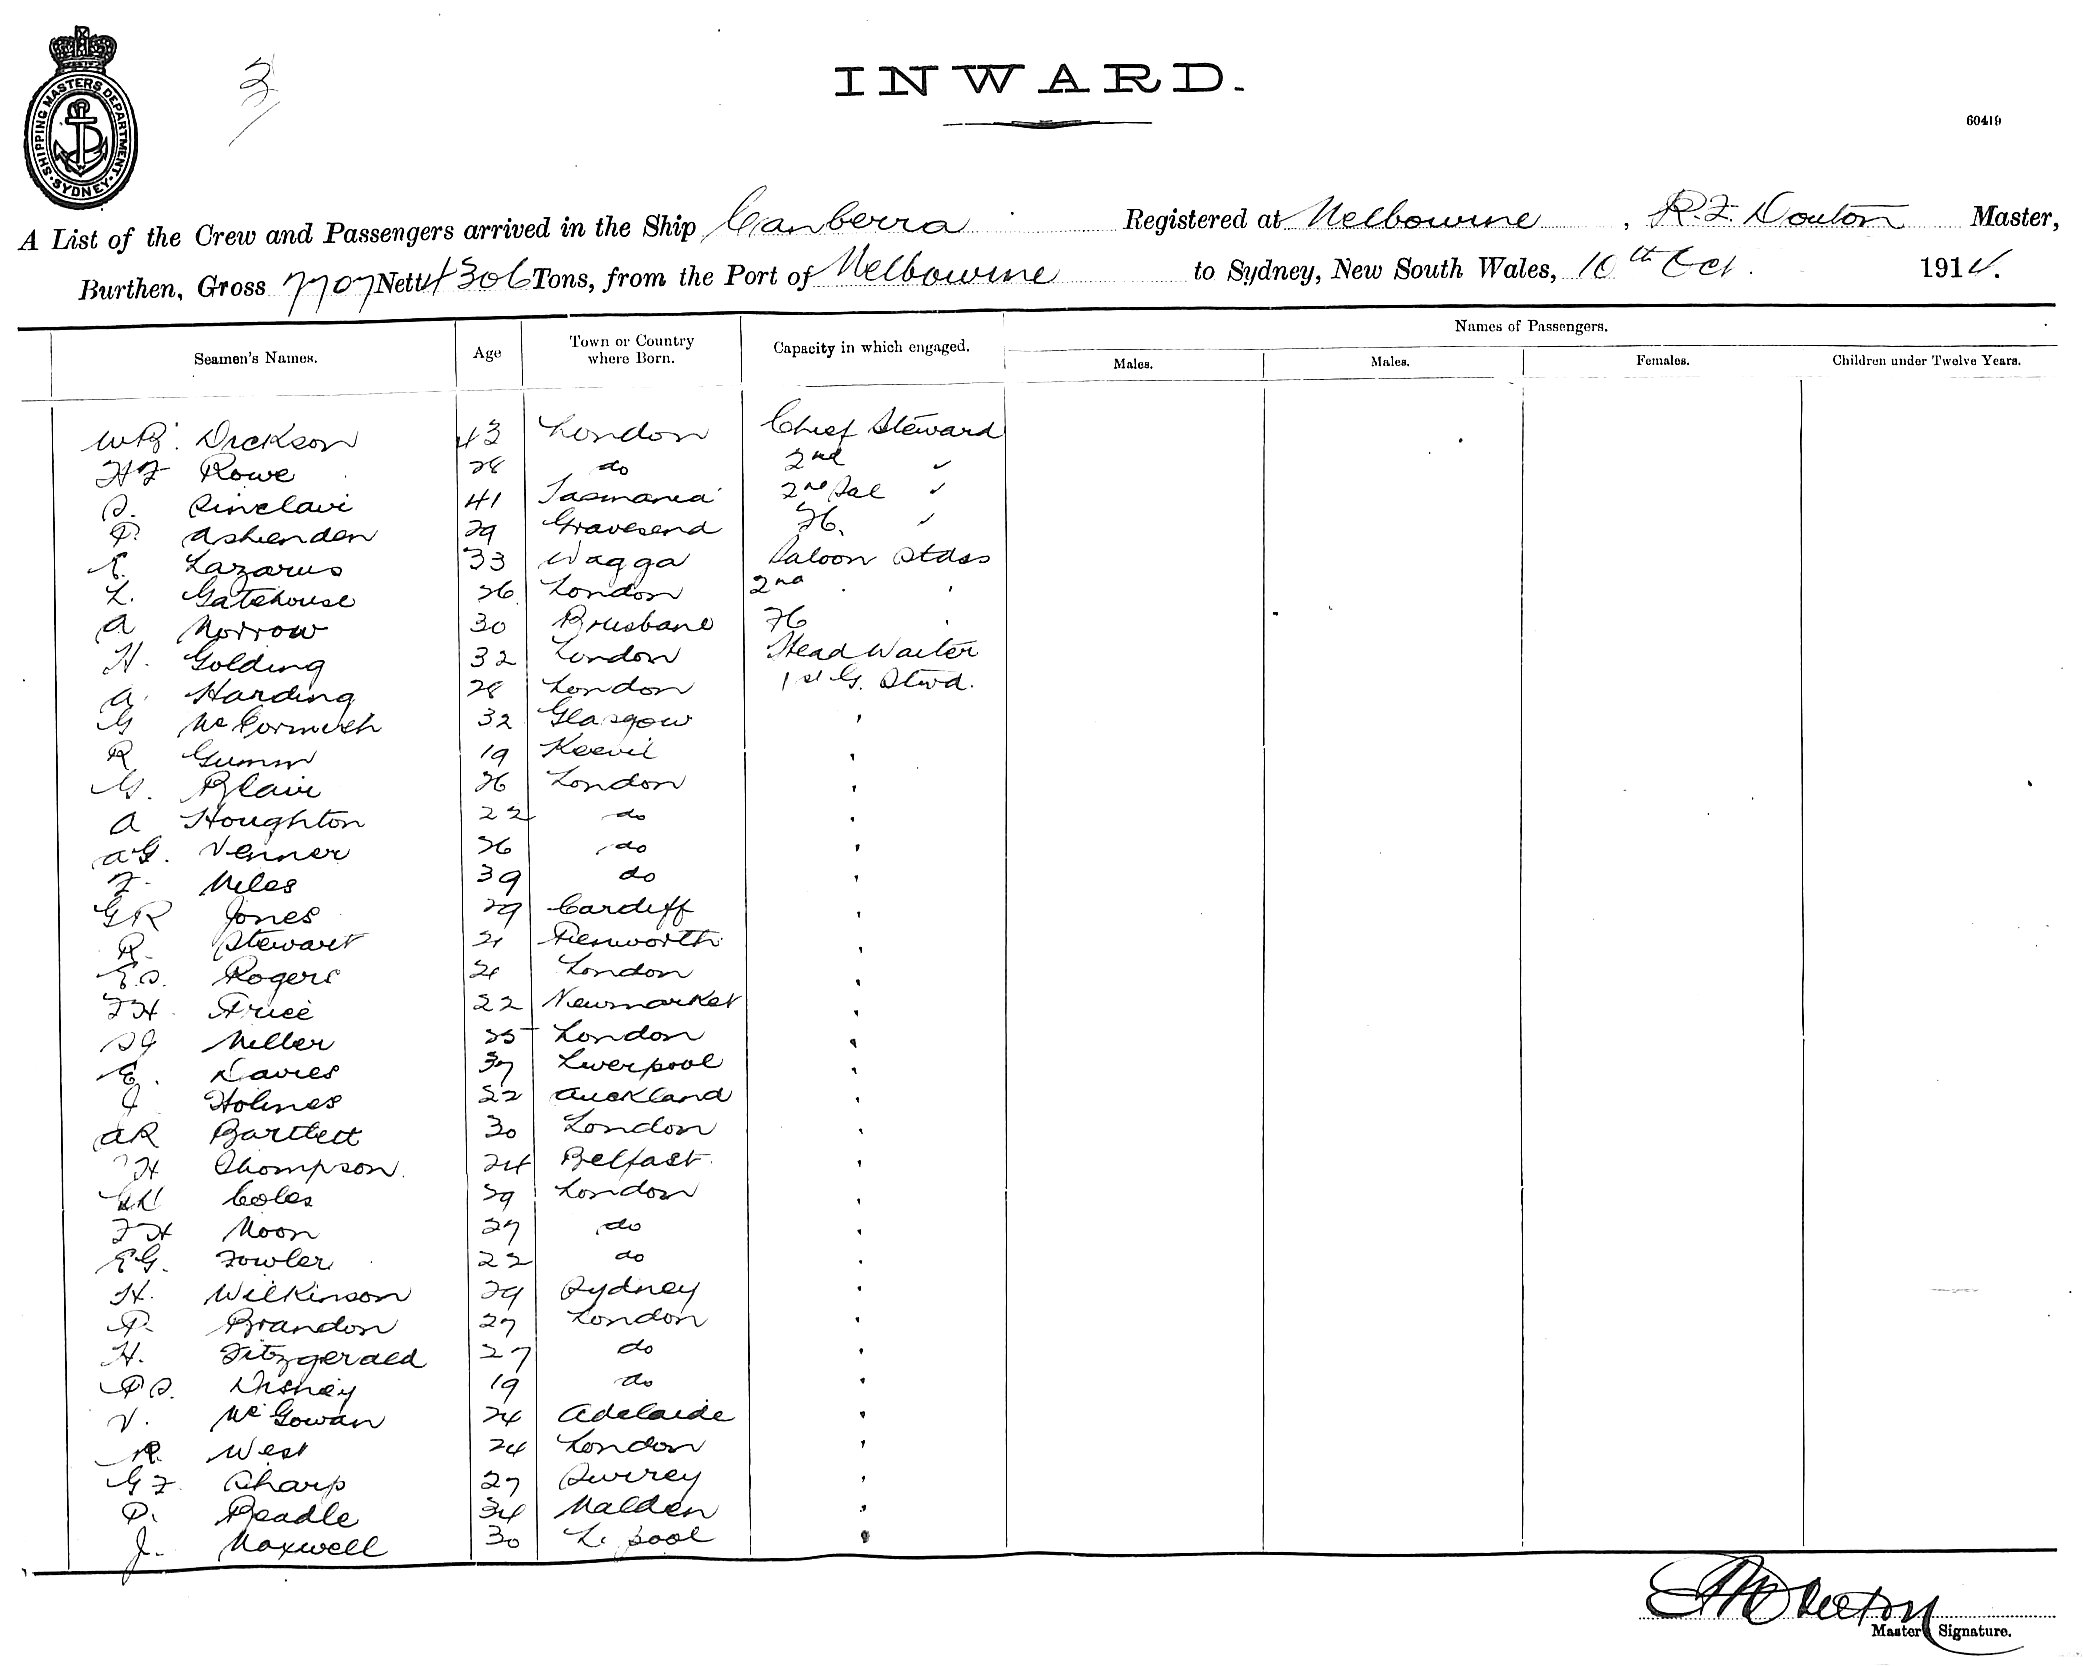 3
SHIPPING MASTERS DEPARTMENT. SYDNEY.
INWARD.
60419
A List of the Crew and Passengers arrived in the Ship Canberra Registered at Melbourne, R.F. Douton Master,
Burthen, Gross 7707 Nett 4306 Tons, from the Port of Melbourne to Sydney, New South Wales, 10th Oct. 1914.
Names of Passengers.
Seamen's Names. Age Town or Country where Born. Capacity in which engaged. Males. Males. Females. Children under Twelve Years.
Dickson 43 London Chief Steward
HF Rowe 28 do 2nd
S. Sinclair 41 Tasmania 2nd Sal
P. Ashenden 29 Gravesend FC.
E. Lazarus 33 Wagga Saloon Stdss
L. Gatehouse 26 London 2nd
A Morrow 30 Brisbane FC
H. Golding 32 London Head Waiter
A. Harding 28 London 1st G. Stwd.
G McCormick 32 Glasgow
R Gumm 19 Keevil
G. Blair 26 London
A Houghton 22 do
AG. Venner 26 do
F. Miles 39 do
GR Jones 29 Cardiff
R. Stewart 21 London
E.S. Rogers 21 London
FH. Price 22 Newmarket
SJ Miller 25 London
E. Davies 37 Liverpool
J Holmes 22 Auckland
AR Bartlett 30 London
H Thompson. 24 Belfast.
Coles 29 London
FH Moon 27 do
EG. Fowler 22 do
H. Wilkinson 29 Sydney
P. Brandon 27 London
H. Fitzgerald 27 do
PS. Disney 19 do
V. McGowan 24 Adelaide
R. West 24 London
GF Sharp 27 Surrey
P. Beadle 34 Malden
J. Maxwell 30 L. pool
Master Signature.